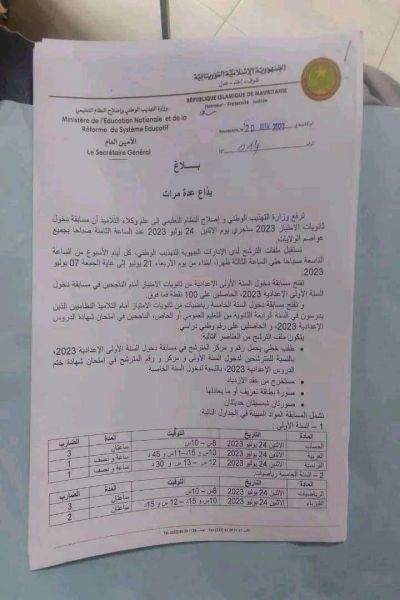 الجمهورية الإسلامية الموريتانية
شرف - إخاء - عدل
RÉPUBLIQUE ISLAMIQUE DE MAURITANIE
Honneur - Fraternité - Justice
وزارة التهذيب الوطني وإصلاح النظام التعليمي
Ministère de l'Education Nationale et de la
Réforme du Système Educatif
الأمين العام
Le Secrétaire Général
Nouakchott, le 20 2023
N° 014 رقم
بـــلاغ
يذاع عدة مرات
ترفع وزارة التهذيب الوطني و إصلاح النظام التعليمي إلى علم وكلاء التلاميذ أن مسابقة دخول
ثانويات الامتياز 2023 ستجرى يوم الاثنين 24 يوليو 2023 عند الساعة الثامنة صباحا بجميع
عواصم الولايات.
تستقبل ملفات الترشح لدى الإدارات الجهوية للتهذيب الوطني، كل أيام الأسبوع من الساعة
التاسعة صباحا حتى الساعة الثالثة ظهرا، ابتداء من يوم الأربعاء 21 يونيو إلى غاية الجمعة 07 يوليو
2023.
تفتح مسابقة دخول السنة الأولى الإعدادية من ثانويات الامتياز أمام الناجحين في مسابقة دخول
السنة الأولى الإعدادية 2023، الحاصلين على 100 نقطة فما فوق.
و تفتح مسابقة دخول السنة الخامسة رياضيات من ثانويات الامتياز أمام التلاميذ النظاميين الذين
يدرسون في السنة الرابعة الثانوية من التعليم العمومي أو الخاص، الناجحين في امتحان شهادة الدروس
الإعدادية 2023، و الحاصلين على رقم وطني دراسي.
يتكون ملف الترشح من العناصر التالية:
طلب خطي يحمل رقم و مركز المترشح في مسابقة دخول السنة الأولى الإعدادية 2023،
بالنسبة للمترشحين لدخول السنة الأولى و مركز و رقم المترشح في امتحان شهادة ختم
الدروس الإعدادية 2023، بالنسبة لدخول السنة الخامسة.
مستخرج من عقد الازدياد
صورة بطاقة تعريف أو ما يعادلها
صورتان شمسيتان حديثتان
تشمل المسابقة المواد المبينة في الجداول التالية:
1 - السنة الأولى:
المادة التاريخ التوقيت المدة الضارب
الحساب الاثنين 24 يوليو 2023 8س – 10س ساعتان 3
العربية الاثنين 24 يوليو 2023 10س و 15د – 11س و 45د ساعة و نصف 1
الفرنسية الاثنين 24 يوليو 2023 12س – 13س و 30د ساعة و نصف 1
2 - السنة الخامسة رياضيات:
المادة التاريخ التوقيت المدة الضارب
الرياضيات الاثنين 24 يوليو 2023 8س – 10س ساعتان 3
الفيزياء الاثنين 24 يوليو 2023 10س و 15د – 12س و 15د ساعتان 2